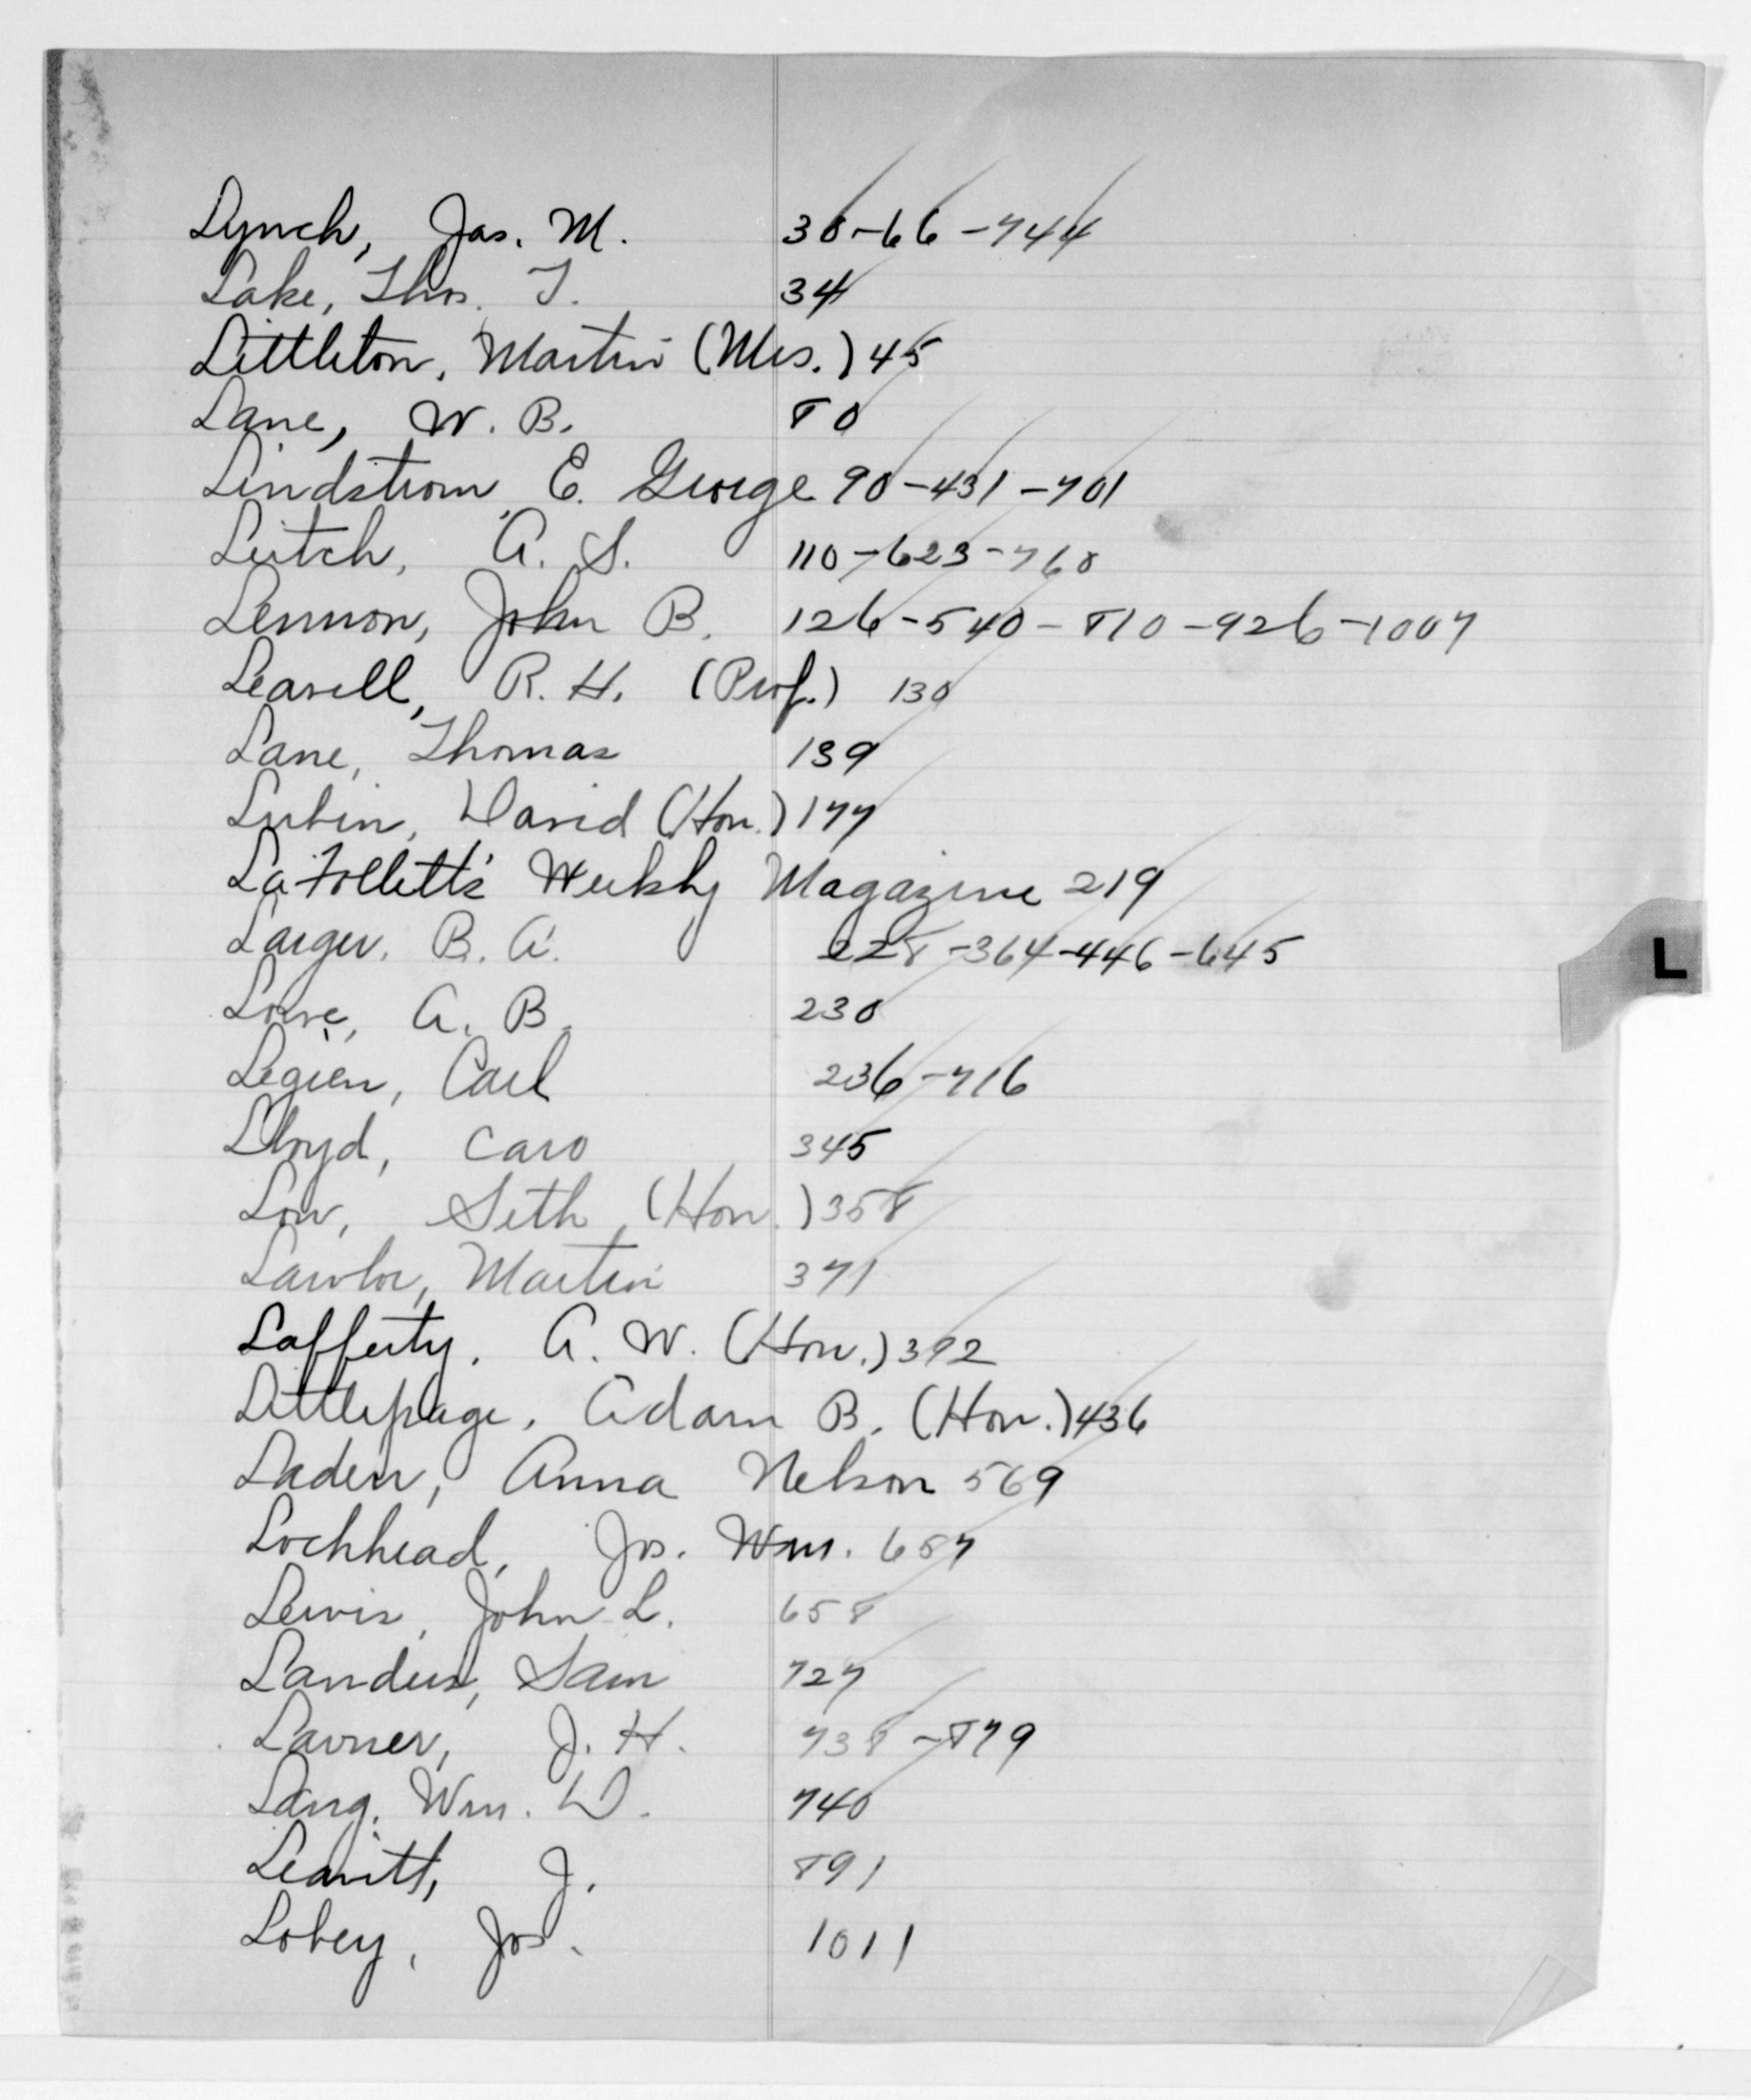 Lynch, Jas. M. 30-66-744
Lake, Thos. T. 34
Littleton, Martin (Mrs.) 45
Lane, W. B. 80
Lindstrom, E. George 90-431-701
Leitch, A. S. 110-623-760
Lennon, John B. 126-540-810-926-1007
Leavell, R. H. (Prof.) 130
Lane, Thomas 139
Lubin, David (Hon.) 177
La Follette's Weekly Magazine 219
Larger, B. A. 228-364-446-645
Lowe, A. B. 230
Legien, Carl 236-716
Lloyd, Caro 345
Low, Seth (Hon.) 358
Lawlor, Martin 371
Lafferty, A. W. (Hon.) 392
Littlepage, Adam B. (Hon.) 436
Laden, Anna Nelson 569
L
Lochhead, Jos. Wm. 657
Lewis, John L. 658
Landers, Sam 727
Lavner, J. H. 738-879
Lang, Wm. D. 740
Leavitt, J. 891
Lobey, Jos. 1011